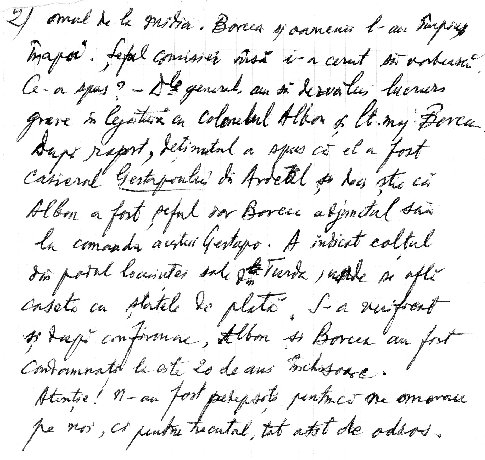 2) omul de la Midia. Borcea și oamenii l-au împins
înapoi. Șeful comisiei însă i-a cerut să vorbească.
Ce-a spus? - Dle general, am să dezvălui lucruri
grave în legătură cu colonelul Albon și lt. maj. Borcea
După raport, deținutul a spus că el a fost
casierul Gestapoului din Ardeal și deci știe că
Albon a fost șeful iar Borcea adjunctul său
la comanda acestui Gestapo. A indicat colțul
din podul locuinței sale din Turda, unde se află
caseta cu ștatele de plată. S-a verificat
și după confirmare, Albon și Borcea au fost
condamnați la câte 20 de ani închisoare.
Atenție! N-au fost pedepsiți pentru că ne omorau
pe noi, ci pentru trecutul, tot atât de odios.